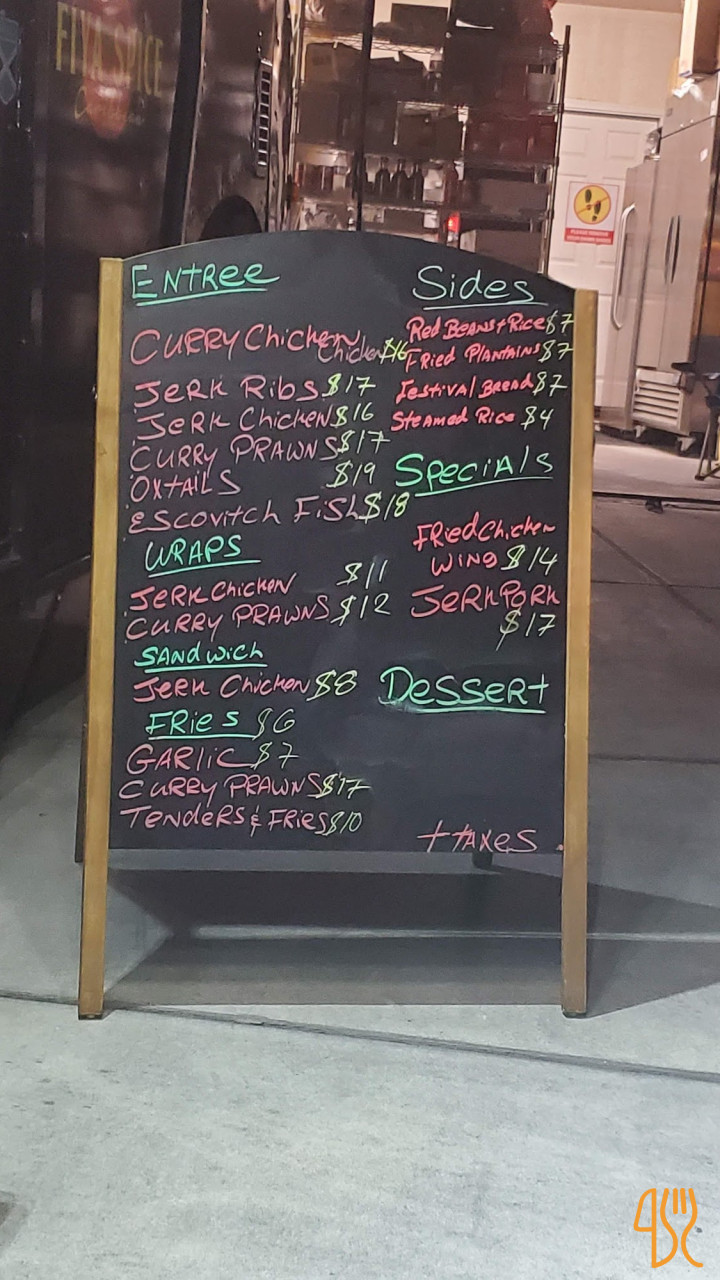 FIYA SPICE
ENTRee
CURRY Chicken
Chicken $16
JeRK RiBS $17
JeRK Chicken $16
CURRY PRAWNS $17
OXTAILS $19
eScovitch FiSh $18
WRAPS
JeRK Chicken $11
CURRY PRAWNS $12
SANDwich
JeRK Chicken $8
FRieS $6
GARLiC $7
CURRY PRAWNS $17
TeNDeRS & FRieS $10
Sides
Red BeANS + Rice $7
FRied PlANTAiNS $7
FeSTiVAl BReAD $7
STeAMeD Rice $4
SpeciAlS
FRied Chicken
WiNG $14
JeRK PORK
$17
DeSSeRt
+ TAXeS